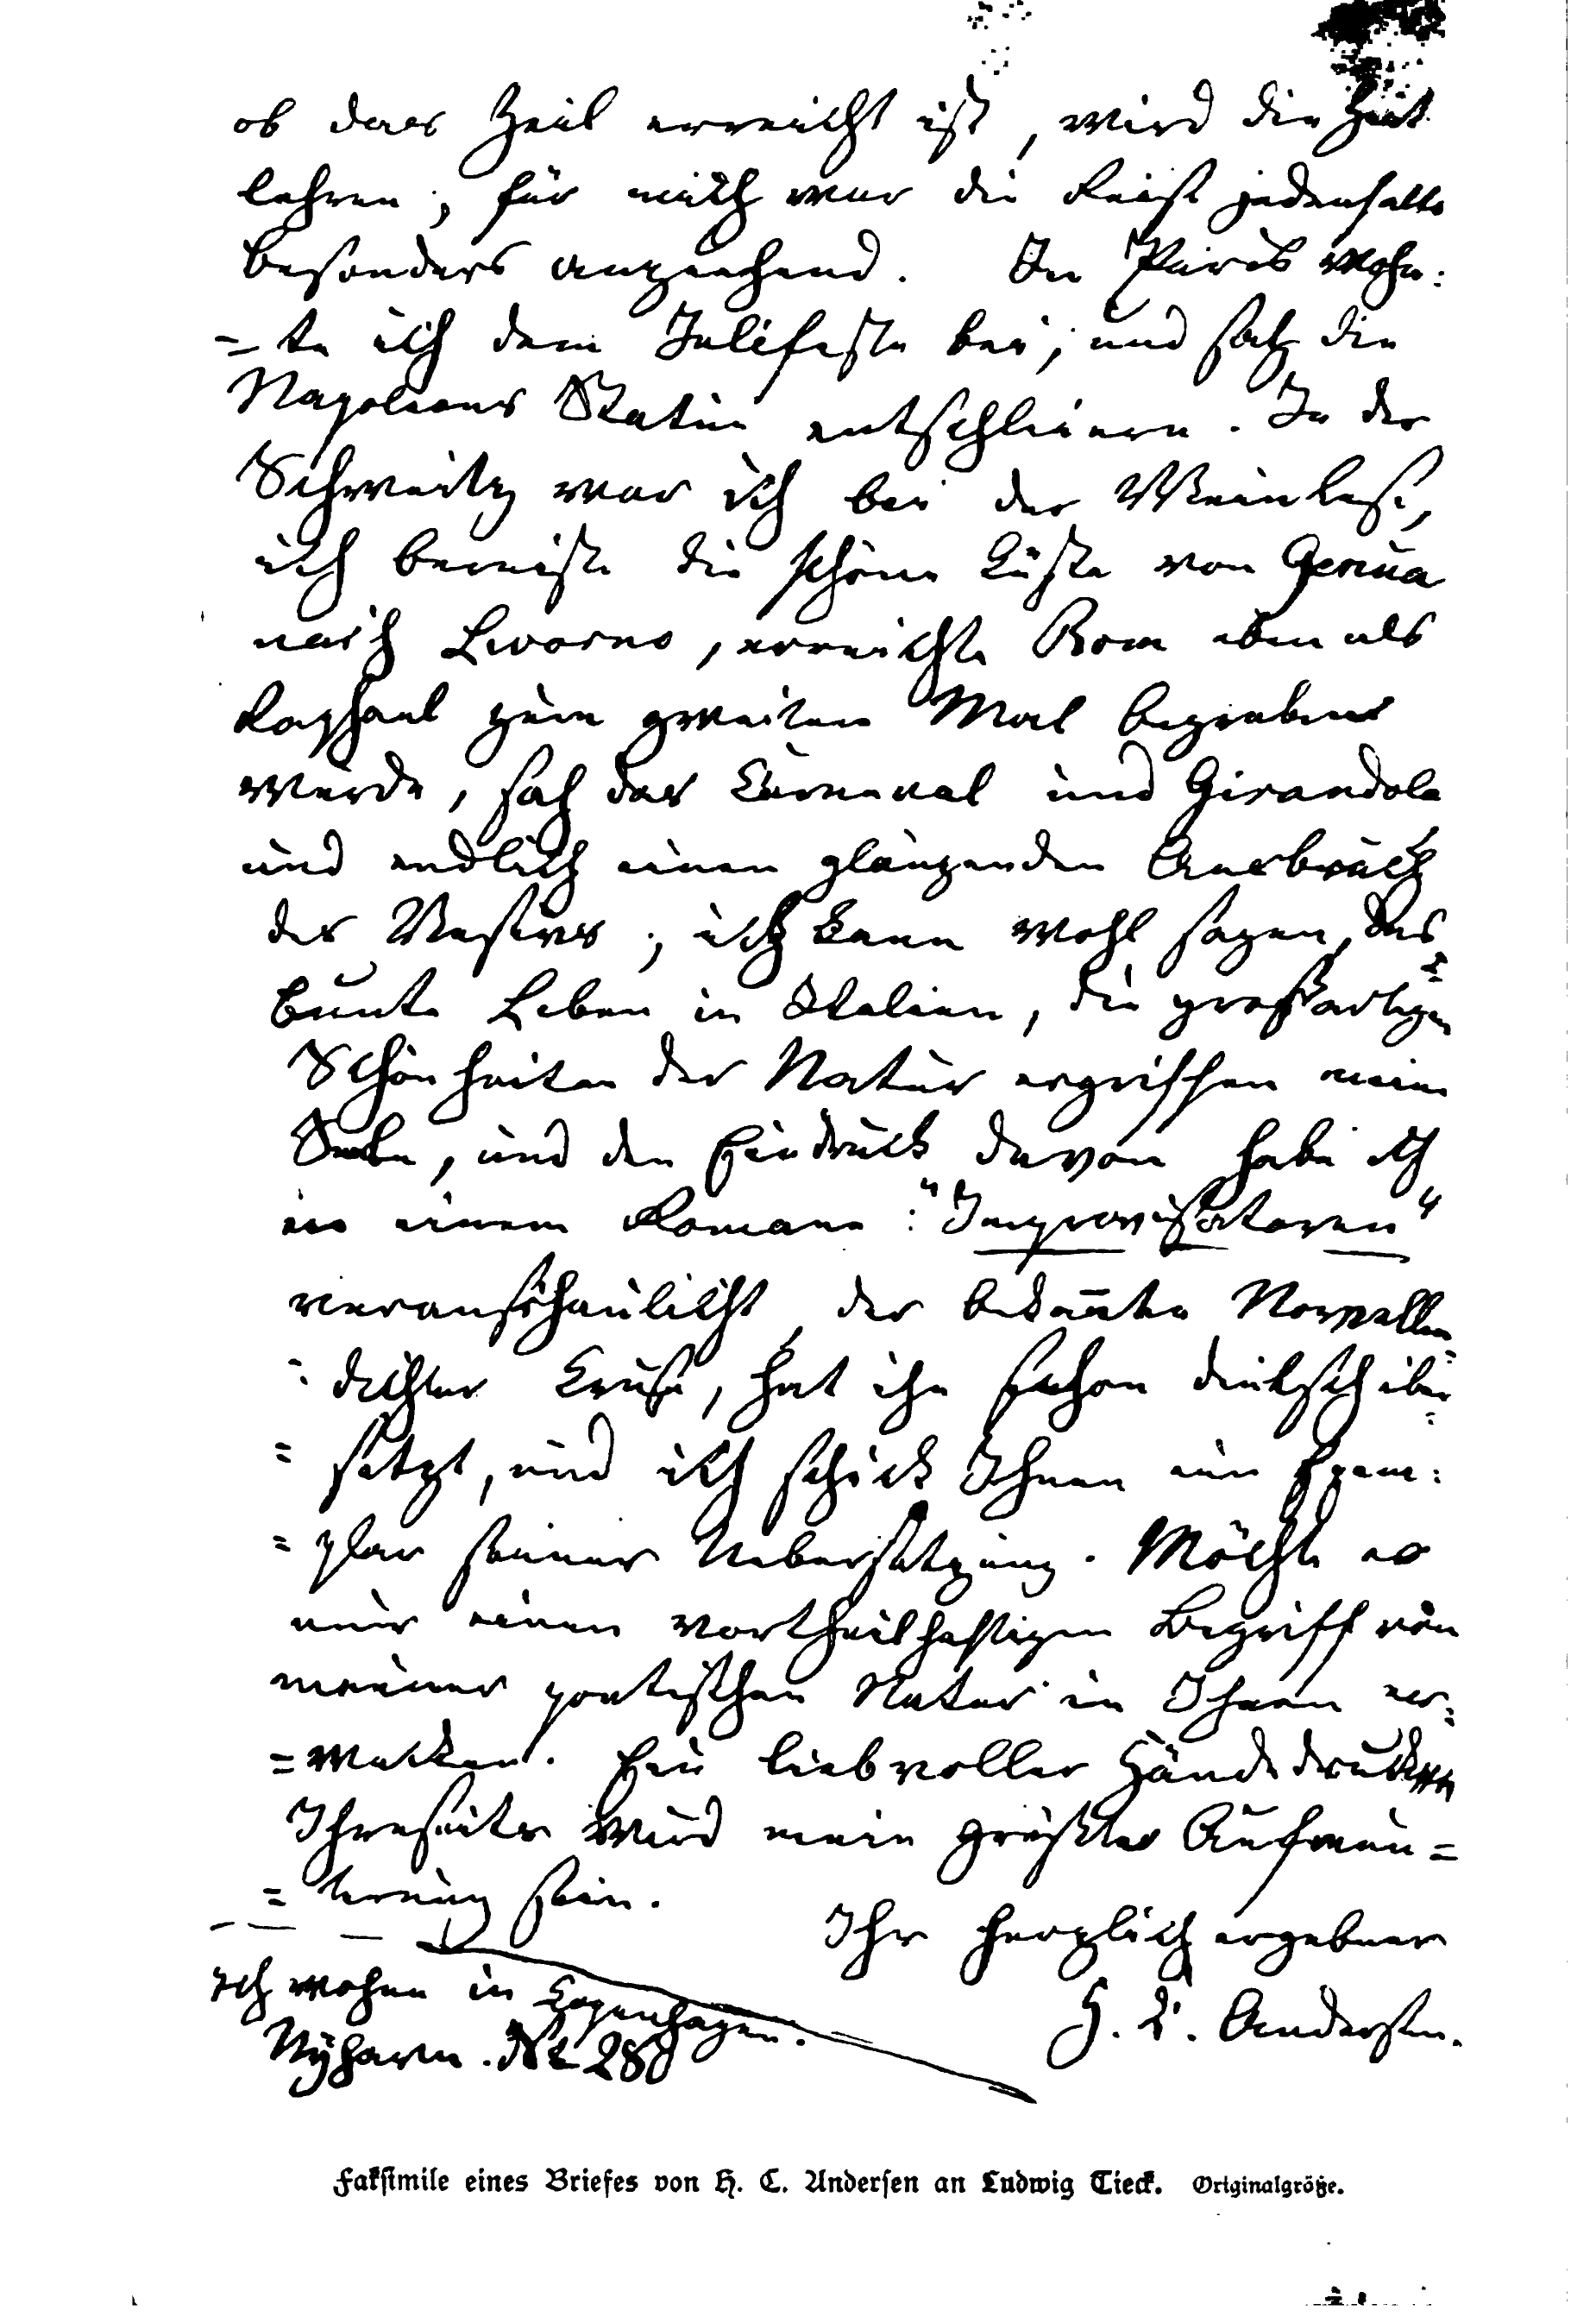 ob das Zeil erreicht ist, wird die Zeit
lehren; für mich war die Reise jedenfalls
besonders anziehend. In Paris wohn:
=te ich dem Julifeste bei, und sah die
Napoleons Statue entschleiern. In der
Schweitz war ich bei der Weinlese,
ich bereiste die schöne Küste von Genua
nach Livorno, erreichte Rom eben als
Raphael zum zweiten Mal begraben
wurde, sah das Karneval und Girandola
und endlich einen glänzenden Ausbruch
des Vesuvs; ich kann wohl sagen, das
bunte Leben in Italien, die großartigen
Schönheiten der Natur ergriffen meine
Seele, und den Eindruck davon habe ich
in einem Romane: "Improvisatoren"
veranschaulicht, der bekannte Novellen=
=dichter Kruse, hat ihn schon deutsch über=
=setzt, und ich schick Ihnen ein Exem:
=plar seiner Uebersetzung. Möchte es
nur einen vortheilhaftigen Begriff von
meiner poetischen Natur in Ihnen er=
=wecken. Ein liebvoller Händedruck
Ihrerseits wird mein größter Aufmun=
=terung sein.
Ihr herzlich ergebner
H. C. Andersen.
Ich wohne in Kopenhagen.
Nÿhavn. No 280
Faksimile eines Briefes von H. C. Andersen an Ludwig Tieck. Originalgröße.